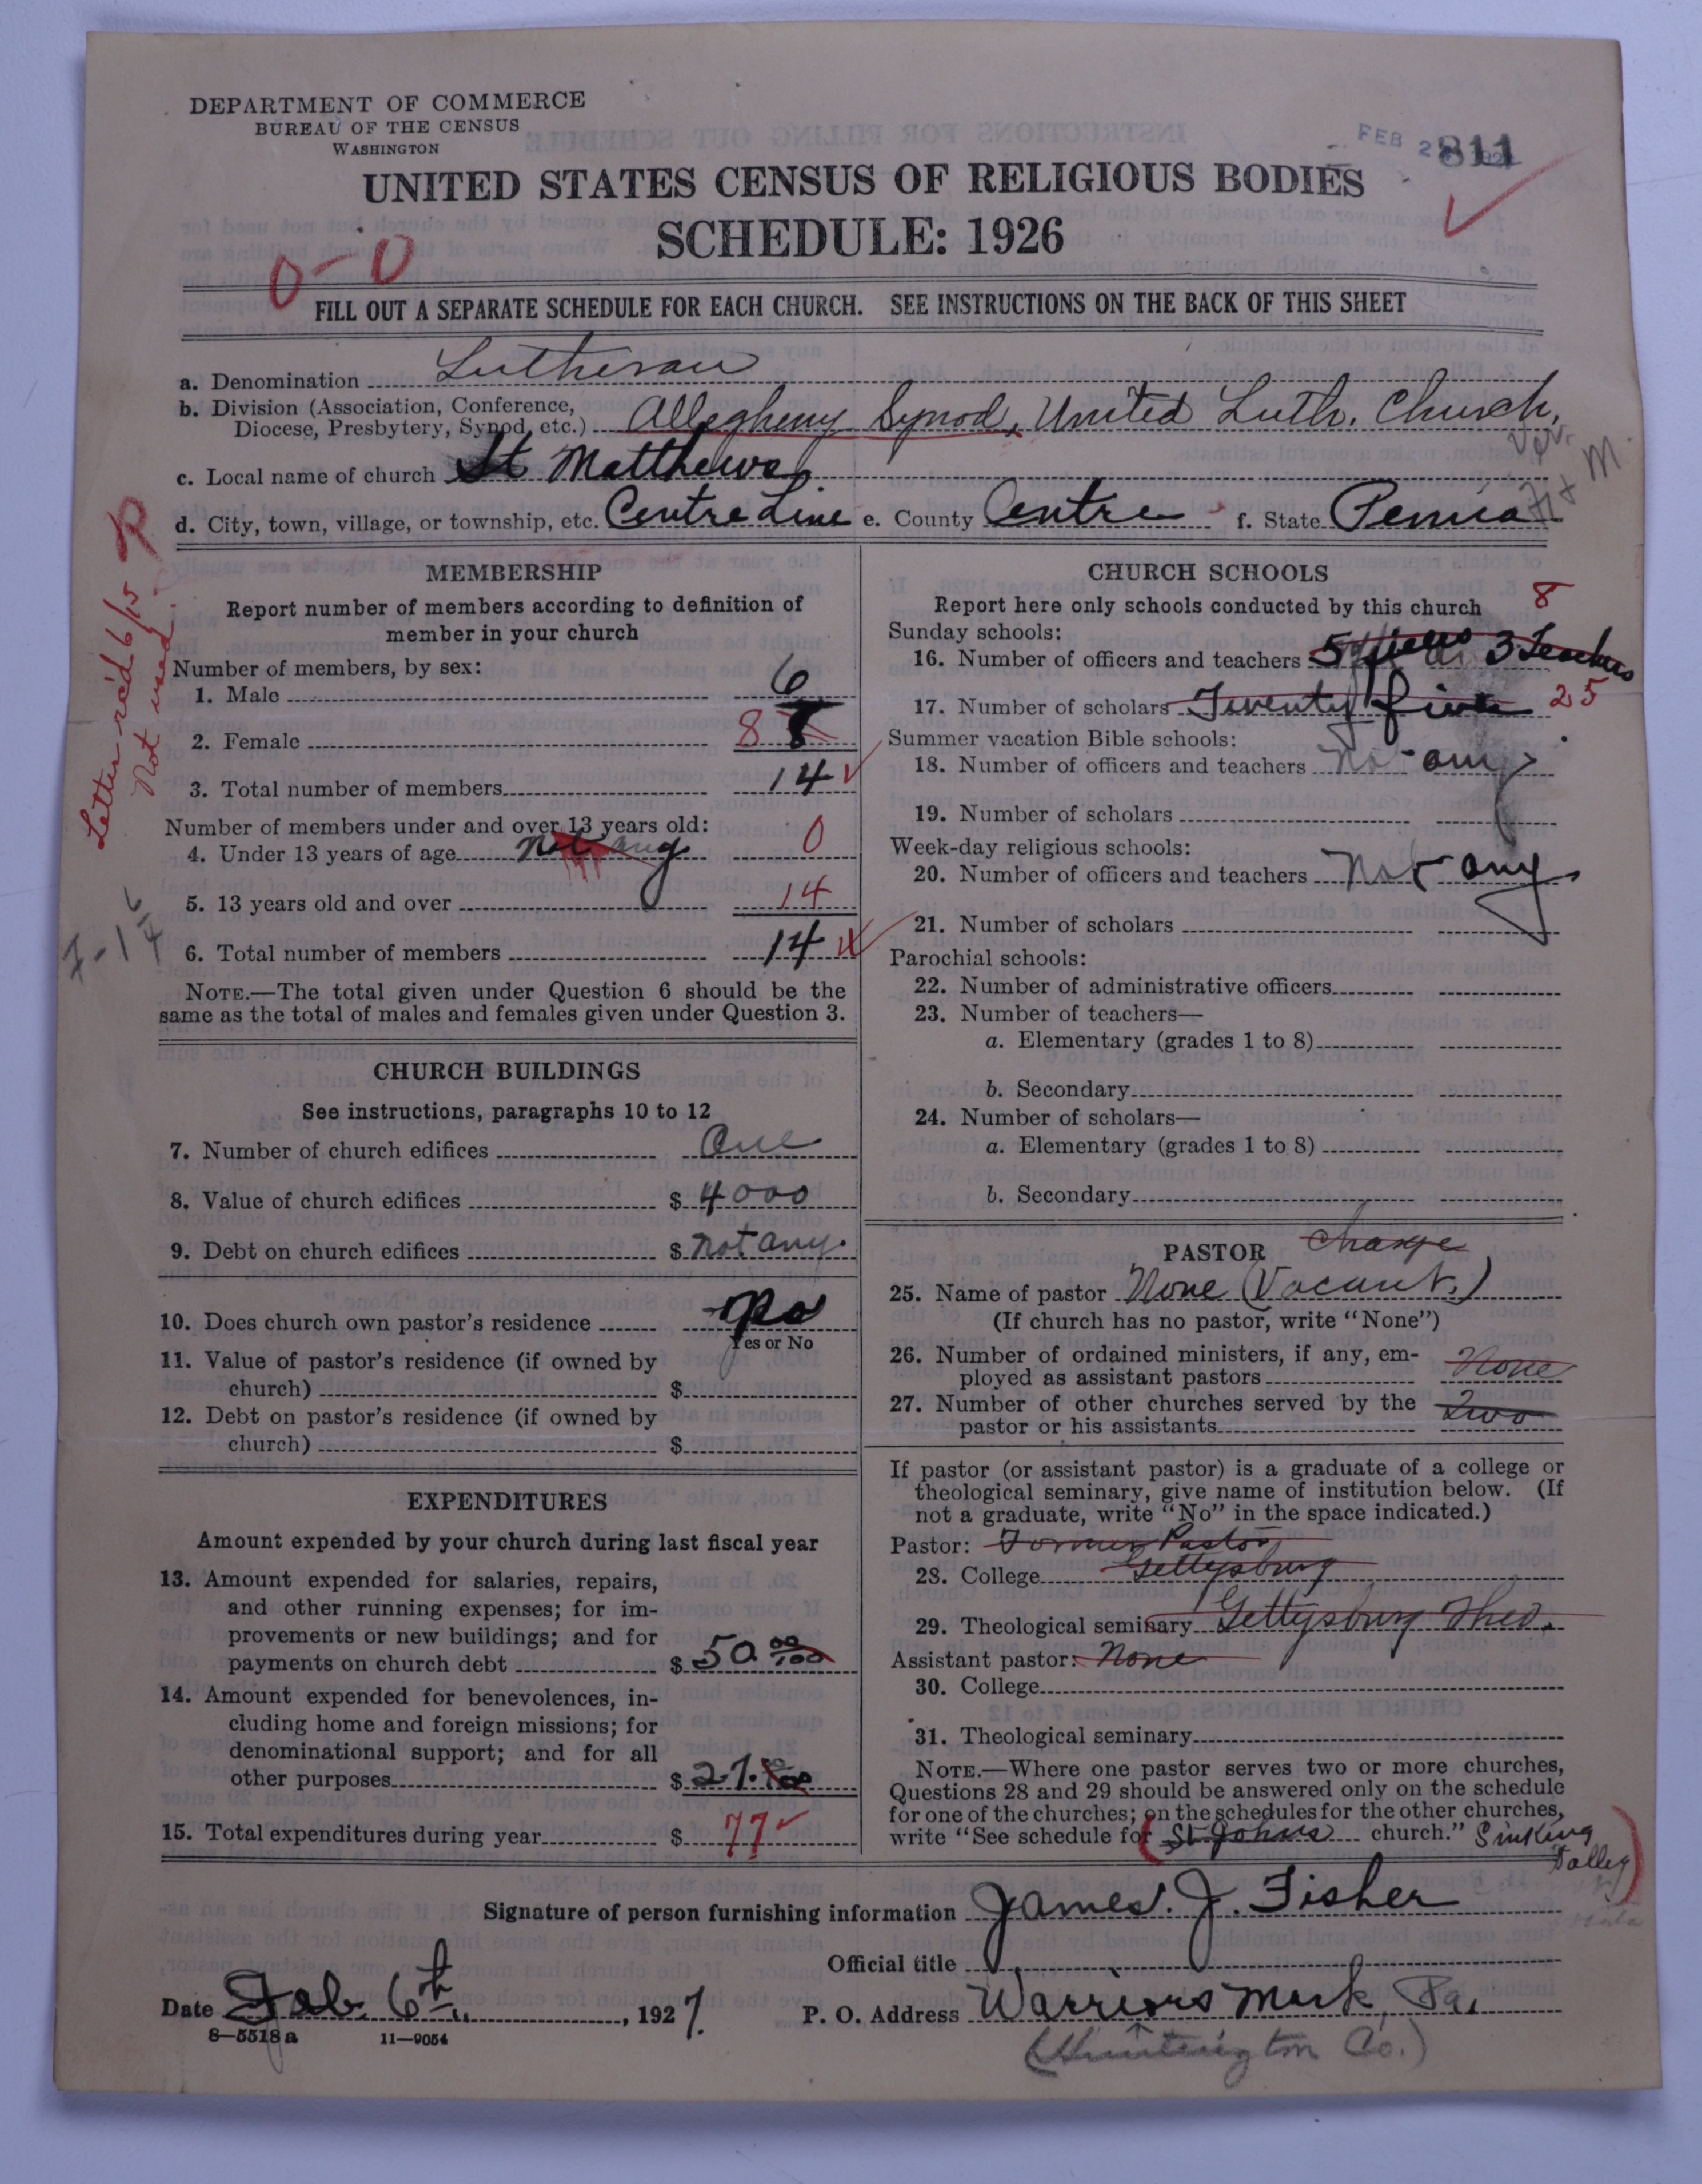 DEPARTMENT OF COMMERCE
BUREAU OF THE CENSUS
WASHINGTON
FEB 2
811
UNITED STATES CENSUS OF RELIGIOUS BODIES
SCHEDULE: 1926
0-0
FILL OUT A SEPARATE SCHEDULE FOR EACH CHURCH. SEE INSTRUCTIONS ON THE BACK OF THIS SHEET
a. Denomination Lutheran
b. Division (Association, Conference,
Diocese, Presbytery, Synod, etc.) Allegheny Synod, United Luth. Church,
c. Local name of church St Matthews
d. City, town, village, or township, etc. Centre Line e. County Centre f. State Penna
Letter rec'd 6/15
Not used
MEMBERSHIP
Report number of members according to definition of
member in your church
Number of members, by sex:
1. Male 6
2. Female 8 8
3. Total number of members 14
Number of members under and over 13 years old:
4. Under 13 years of age not any 0
5. 13 years old and over 14
6. Total number of members 14
NOTE.—The total given under Question 6 should be the
same as the total of males and females given under Question 3.
CHURCH BUILDINGS
See instructions, paragraphs 10 to 12
7. Number of church edifices One
8. Value of church edifices $ 4000
9. Debt on church edifices $ not any.
10. Does church own pastor's residence no
Yes or No
11. Value of pastor's residence (if owned by
church) $
12. Debt on pastor's residence (if owned by
church) $
EXPENDITURES
Amount expended by your church during last fiscal year
13. Amount expended for salaries, repairs,
and other running expenses; for im-
provements or new buildings; and for
payments on church debt $ 50 00/100
14. Amount expended for benevolences, in-
cluding home and foreign missions; for
denominational support; and for all
other purposes $ 27.
15. Total expenditures during year $ 77
CHURCH SCHOOLS
Report here only schools conducted by this church 8
Sunday schools:
16. Number of officers and teachers 5 3 Teachers
17. Number of scholars Twenty five 25
Summer vacation Bible schools:
18. Number of officers and teachers not any
19. Number of scholars
Week-day religious schools:
20. Number of officers and teachers not any
21. Number of scholars
Parochial schools:
22. Number of administrative officers
23. Number of teachers—
a. Elementary (grades 1 to 8)
b. Secondary
24. Number of scholars—
a. Elementary (grades 1 to 8)
b. Secondary
PASTOR Charge
25. Name of pastor None (Vacant.)
(If church has no pastor, write "None")
26. Number of ordained ministers, if any, em-
ployed as assistant pastors None
27. Number of other churches served by the
pastor or his assistants Two
If pastor (or assistant pastor) is a graduate of a college or
theological seminary, give name of institution below. (If
not a graduate, write "No" in the space indicated.)
Pastor: Former Pastor
28. College Gettysburg
29. Theological seminary Gettysburg Theo.
Assistant pastor: None
30. College
31. Theological seminary
NOTE.—Where one pastor serves two or more churches,
Questions 28 and 29 should be answered only on the schedule
for one of the churches; on the schedules for the other churches,
write "See schedule for St Johns church." Sinking
Valley
Signature of person furnishing information James. J. Fisher
Official title
Date Feb. 6th, 1927. P. O. Address Warriors Mark, Pa.
8—5518 a 11—9054
(Huntington Co.)